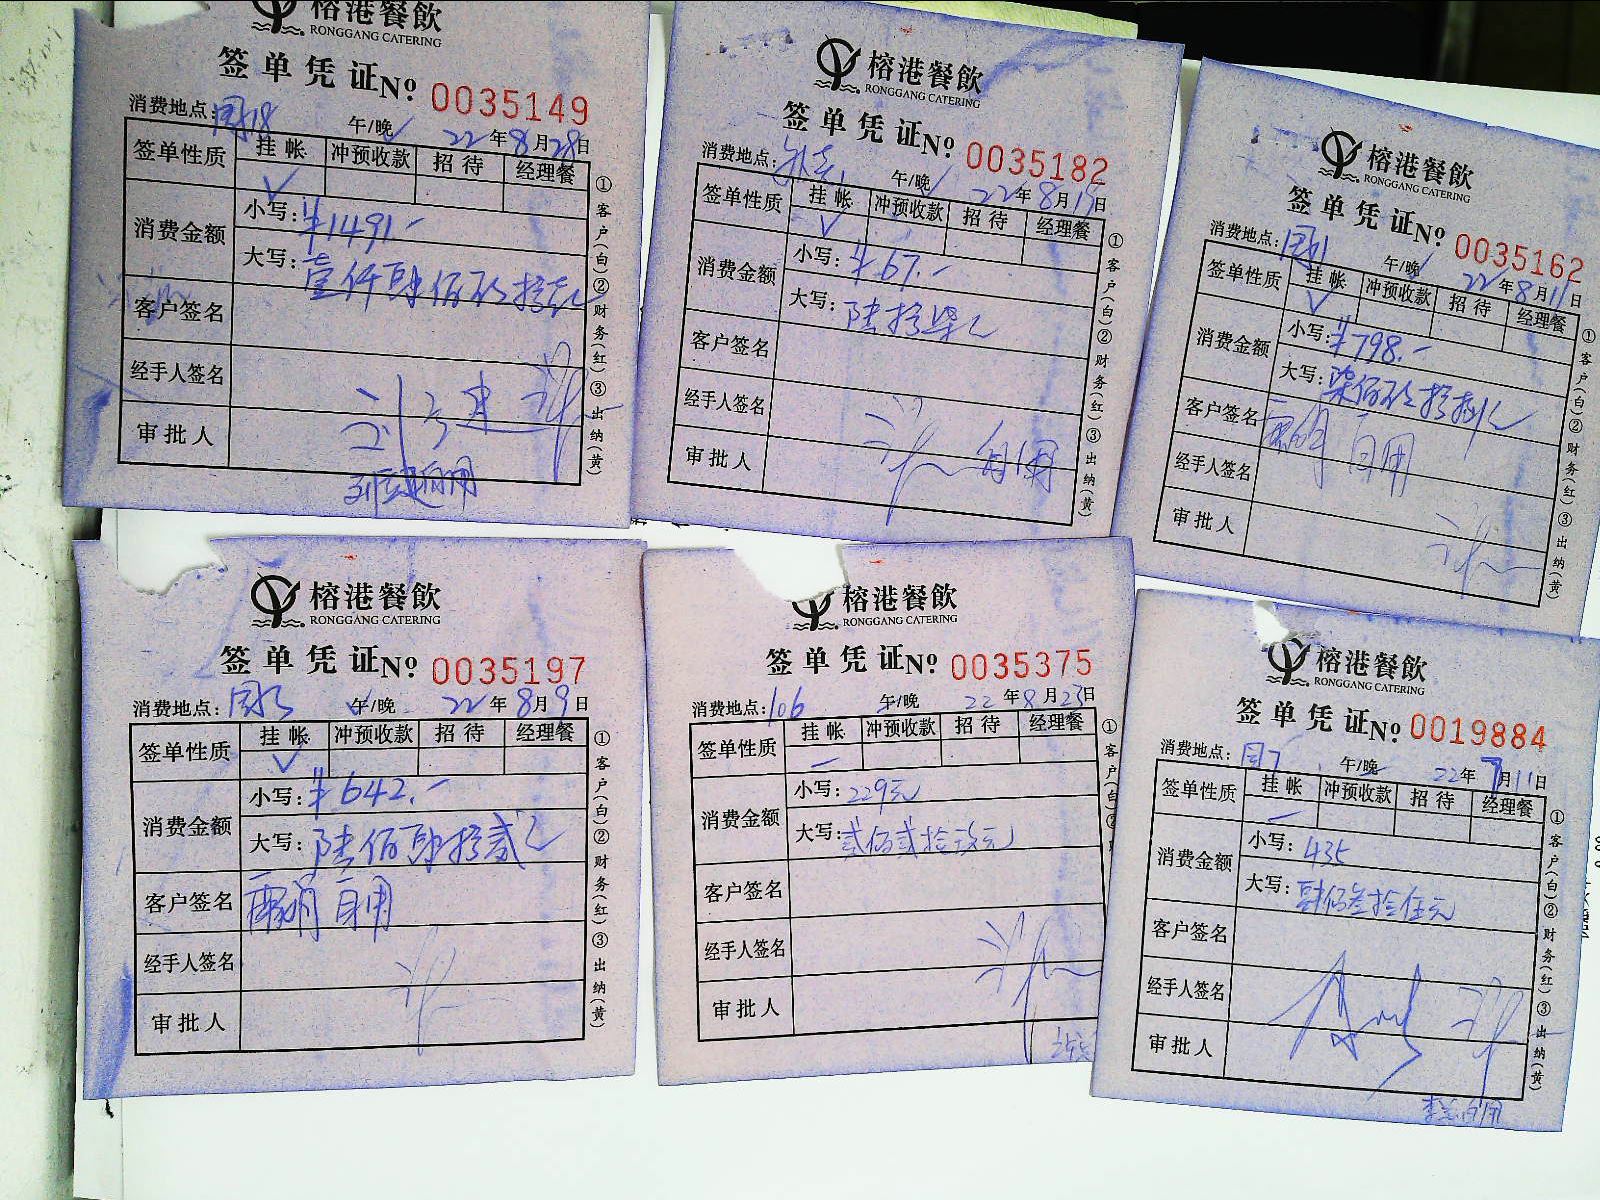 榕港餐飲
RONGGANG CATERING
签单凭证 Nº 0035149
消费地点:
午/晚 22年8月28日
签单性质 挂帐 冲预收款 招待 经理餐
消费金额 小写: ¥1491.-
大写: 壹仟肆佰玖拾壹元
客户签名
经手人签名
审批人
①客户(白)②财务(红)③出纳(黄)
榕港餐飲
RONGGANG CATERING
签单凭证 Nº 0035182
消费地点:
午/晚 22年8月19日
签单性质 挂帐 冲预收款 招待 经理餐
消费金额 小写: ¥67.-
大写: 陆拾柒元
客户签名
经手人签名
审批人
①客户(白)②财务(红)③出纳(黄)
榕港餐飲
RONGGANG CATERING
签单凭证 Nº 0035162
消费地点:
午/晚 22年8月11日
签单性质 挂帐 冲预收款 招待 经理餐
消费金额 小写: ¥798.-
大写: 柒佰玖拾捌元
客户签名 自用
经手人签名
审批人
①客户(白)②财务(红)③出纳(黄)
榕港餐飲
RONGGANG CATERING
签单凭证 Nº 0035197
消费地点:
午/晚 22年8月9日
签单性质 挂帐 冲预收款 招待 经理餐
消费金额 小写: ¥642.-
大写: 陆佰肆拾贰元
客户签名 自用
经手人签名
审批人
①客户(白)②财务(红)③出纳(黄)
榕港餐飲
RONGGANG CATERING
签单凭证 Nº 0035375
消费地点: 106
午/晚 22年8月23日
签单性质 挂帐 冲预收款 招待 经理餐
消费金额 小写: 229元
大写: 贰佰贰拾玖元
客户签名
经手人签名
审批人
①客户(白)②
榕港餐飲
RONGGANG CATERING
签单凭证 Nº 0019884
消费地点:
午/晚 22年7月11日
签单性质 挂帐 冲预收款 招待 经理餐
消费金额 小写: 435
大写: 肆佰叁拾伍元
客户签名
经手人签名
审批人
①客户(白)②财务(红)③出纳(黄)